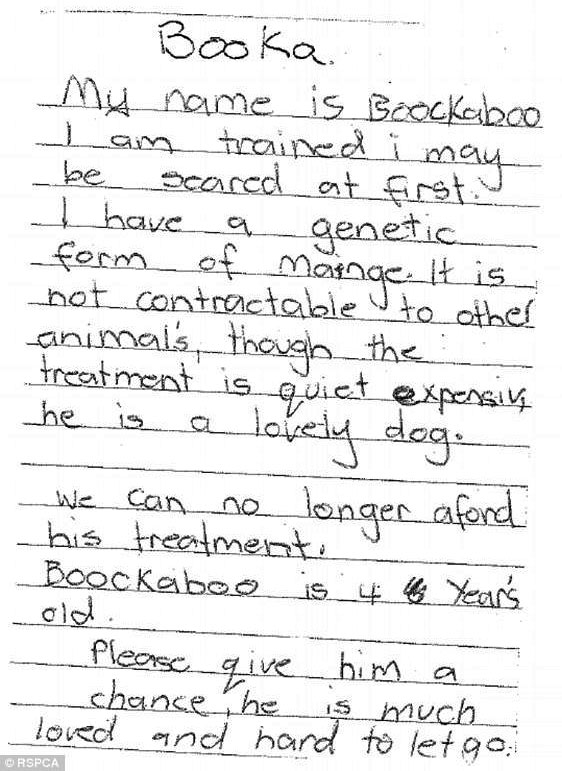 Booka.
My name is Boockaboo
I am trained i may
be scared at first.
I have a genetic
form of Mainge. It is
not contractable to other
animal's, though the
treatment is quiet expensiv
he is a lovely dog.
We can no longer aford
his treatment.
Boockaboo is 4 Year's
old.
Please give him a
chance, he is much
loved and hard to let go.
© RSPCA